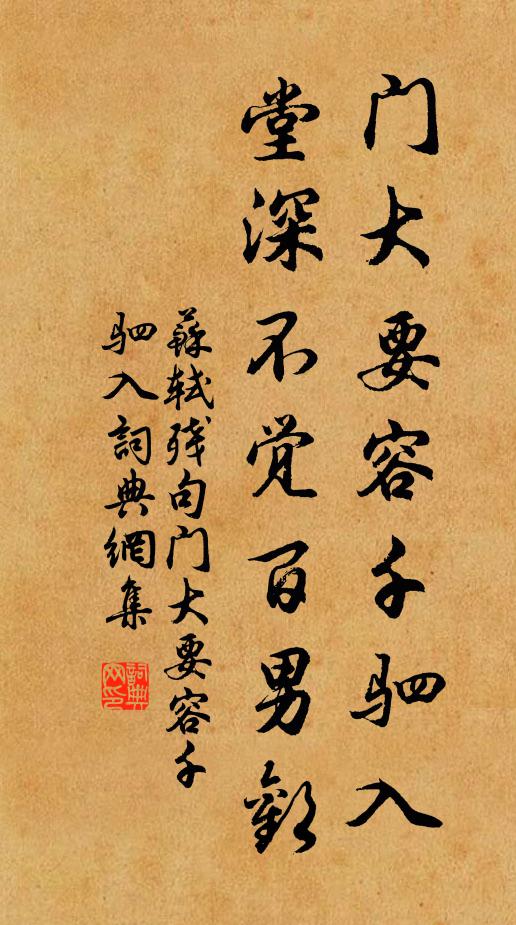 门大要容千驷入
堂深不觉百男欢
苏轼残句门大要容千
驷入词典網集
詞典网印